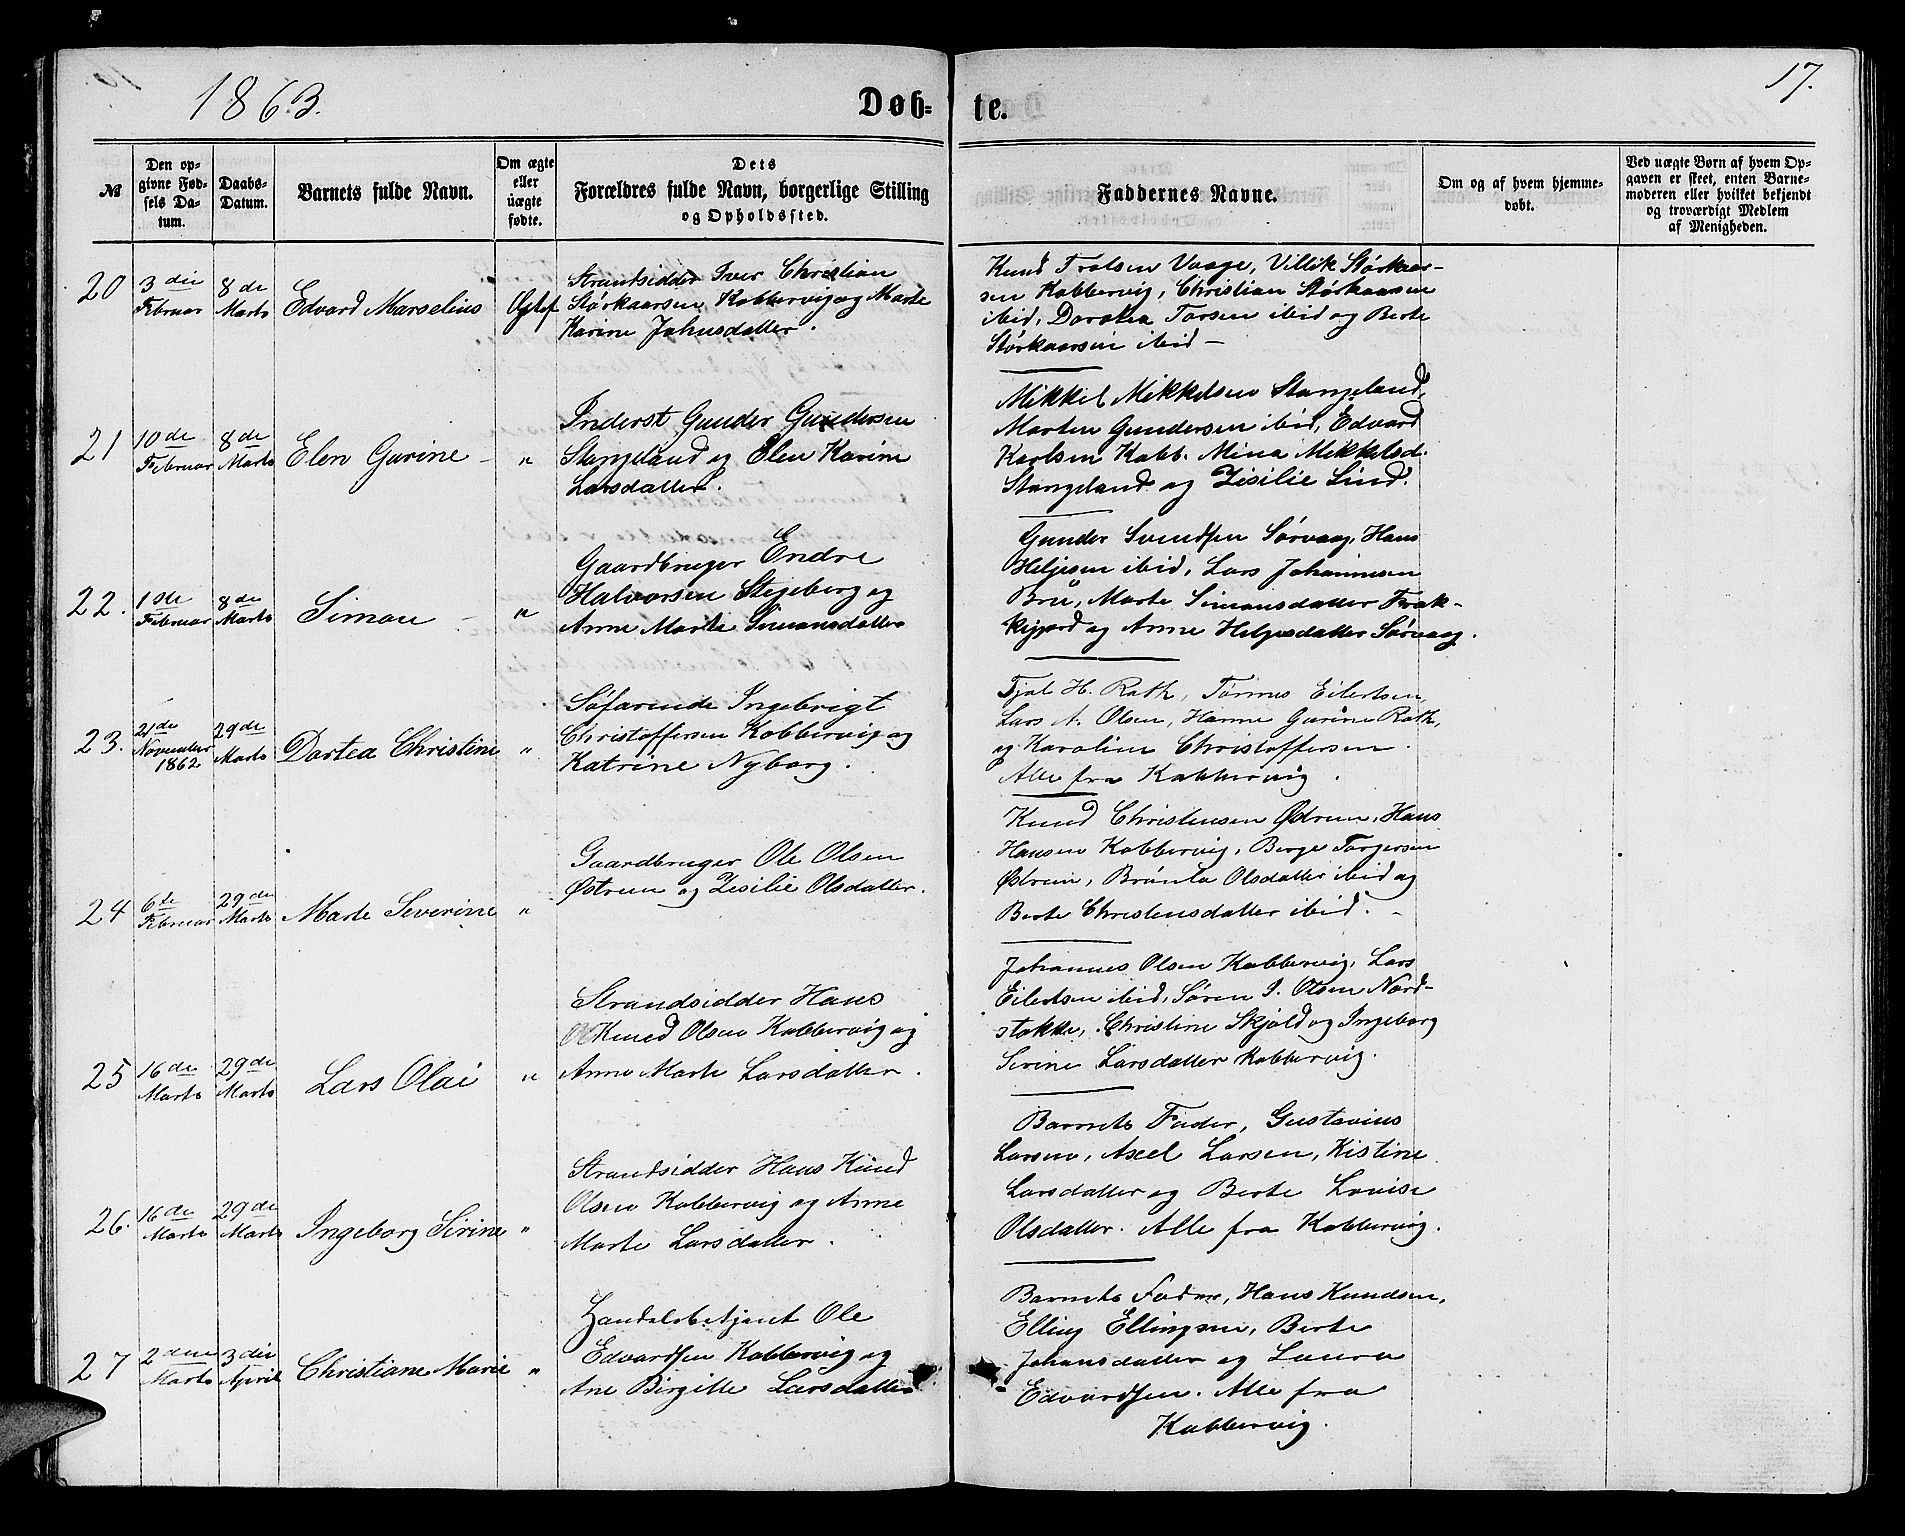 1863.
Døb-
te.
17.
№
Den op-
givne Fød-
sels Da-
tum.
Daabs-
Datum.
Barnets fulde Navn.
Om ægte
eller
uægte
fødte.
Dets
Forældres fulde Navn, borgerlige Stilling
og Opholdssted.
Faddernes Navne.
Om og af hvem hjemme-
døbt.
Ved uægte Børn af hvem Op-
gaven er skeet, enten Barne-
moderen eller hvilket bekjendt
og troværdigt Medlem
af Menigheden.
20
3die
Februar
8de
Marts
Edvard Marselius
Strandsidder Iver Christian
Størkaarsen Kobbervig og Marte
Karine Johnsdatter.
Knud Trolsen Vaage, Villik Størkaar-
sen Kobbervig, Christian Størkaarsen
ibid, Dorothea Torsen ibid og Berte
Størkaarsen ibid -
21
10de
Februar
8de
Marts
Elen Gurine -
"
Inderst Gunder Gundersen
Stangeland og Elen Karine
Larsdatter.
Mikkel Mikkelsen Stangeland,
Marten Gundersen ibid, Edvard
Karlsen Kobb. Mina Mikkelsd.
Stangeland og Zisilie Lind.
22.
1ste
Februar
8de
Marts
Simon -
"
Gaardbruger Endre
Halvorsen Stegeberg og
Anne Marte Simonsdatter
Gunder Svendsen Sørvaag, Hans
Heljesen ibid, Lars Johannesen
Bru, Marte Simonsdatter Trak-
og Anne Helgesdatter Sørvaag.
23.
21de
November
1862
29de
Marts
Dortea Christine
"
Søfarende Ingebrigt
Christoffersen Kobbervig og
Katrine Nyborg.
H. Rath, Tønnes Eilertsen,
Lars A. Olsen, Hanne Gurine Rath,
og Karoline Christoffersen.
Alle fra Kobbervig.
24
6te
Februar
29de
Marts
Marte Severine
"
Gaardbruger Ole Olsen
Østrem og Zisilie Olsdatter.
Knud Christensen Østrem, Hans
Hansen Kobbervig, Berge Torgersen
Østrem, Brønla Olsdatter ibid og
Berte Christensdatter ibid. -
25
16de
Marts
29de
Marts
Lars Olai
"
Strandsidder Hans
Knud Olsen Kobbervig og
Anne Marte Larsdatter.
Johannes Olsen Kobbervig, Lars
Eilertsen ibid, Søren I. Olsen Nord-
stokke, Christine Skjold og Ingeborg
Serine Larsdatter Kobbervig.
26.
16de
Marts
29de
Marts
Ingeborg Sirine
"
Strandsidder Hans Knud
Olsen Kobbervig og Anne
Marte Larsdatter.
Barnets Fader, Gustavius
Larsen, Axel Larsen, Kistine
Larsdatter og Berte Lovise
Olsdatter. Alle fra Kobbervig.
27
2den
Marts
3die
April
Christiane Marie
"
Handelsbetjent Ole
Edvardsen Kobbervig og
Ane Birgitte Larsdatter
Barnets Fader, Hans Knudsen,
Elling Ellingsen, Berte
Johansdatter og Laura
Edvardsen. Alle fra
Kobbervig.